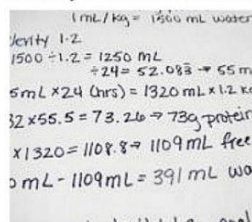 1mL/kg = 1500 mL water
Jevity 1.2
1500 ÷ 1.2 = 1250 mL
÷24 = 52.083 → 55 m
5mL × 24 (hrs) = 1320 mL × 1.2 k
32 × 55.5 = 73.26 → 73g protein
× 1320 = 1108.8 → 1109 mL free
mL - 1109mL = 391 mL wa